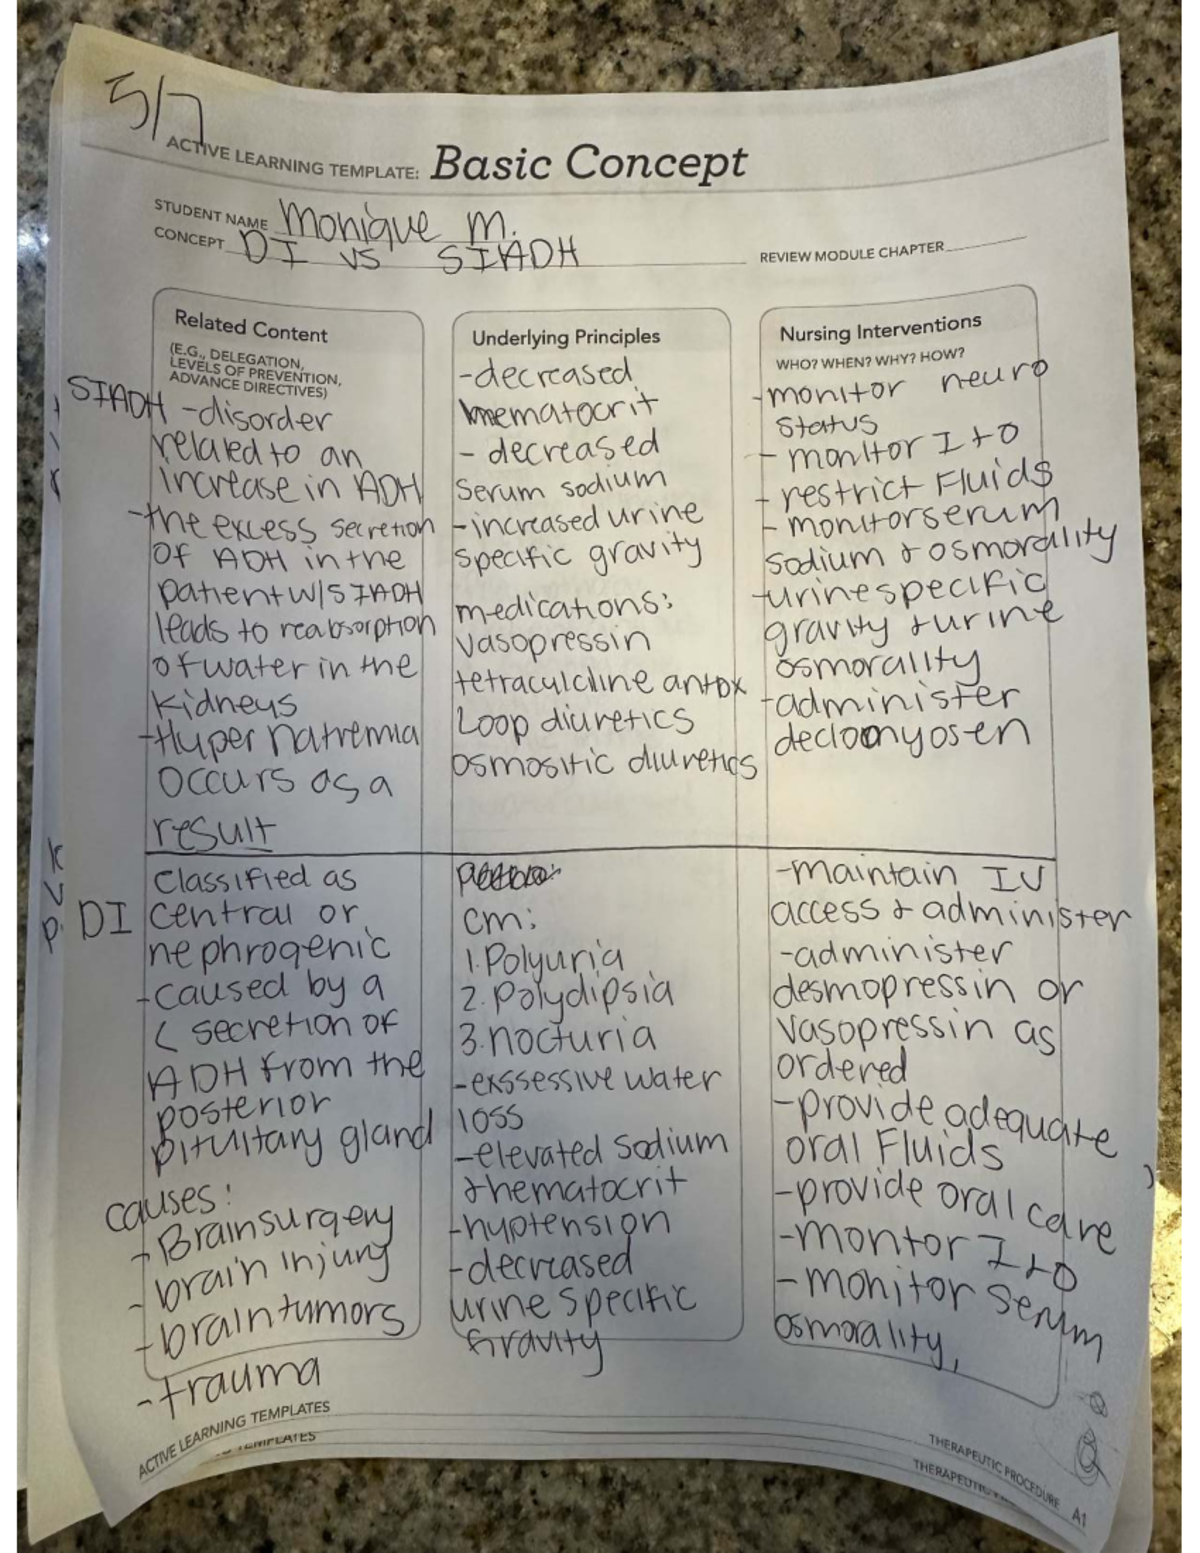 5/7
ACTIVE LEARNING TEMPLATE: Basic Concept
STUDENT NAME Monique M.
CONCEPT DI vs SIADH
REVIEW MODULE CHAPTER
Related Content
(E.G., DELEGATION,
LEVELS OF PREVENTION,
ADVANCE DIRECTIVES)
SIADH -disorder
related to an
increase in ADH
-the excess secretion
of ADH in the
patient w/SIADH
leads to reabsorption
of water in the
kidneys
-Hyper natremia
occurs as a
result
Underlying Principles
-decreased
hematocrit
- decreased
serum sodium
-increased urine
specific gravity
medications:
vasopressin
tetraculcline
Loop diuretics
osmositic diuretics
Nursing Interventions
WHO? WHEN? WHY? HOW?
-monitor neuro
status
- monitor I+O
- restrict Fluids
- monitor serum
sodium + osmorality
-urine specific
gravity + urine
osmorality
-administer
DI
Classified as
central or
nephrogenic
-caused by a
< secretion of
ADH from the
posterior
pituitary gland
causes:
-Brain surgery
-brain injury
-brain tumors
-trauma
cm:
1.Polyuria
2.Polydipsia
3.nocturia
-exssessive water
loss
-elevated sodium
+hematocrit
-hyptension
-decreased
urine specific
Gravity
-maintain IV
access + administer
-administer
desmopressin or
vasopressin as
ordered
-provide adequate
oral Fluids
-provide oral care
-montor I+O
-monitor serum
osmorality,
ACTIVE LEARNING TEMPLATES
TEMPLATES
THERAPEUTIC PROCEDURE A1
THERAPEUTIC